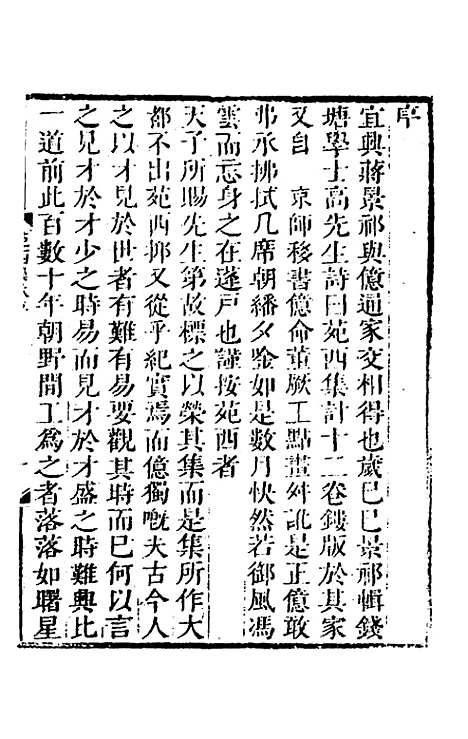 序
宜興蔣景祁與億通家交相得也歲己巳景祁輯錢
塘學士高先生詩曰苑西集計十二卷鏤版於其家
又自　京師移書億命董厥工點畫舛訛是正億敢
弗承拂拭几席朝繙夕鑒如是數月快然若御風馮
雲而忘身之在蓬戶也謹按苑西者
天子所賜先生第故標之以榮其集而是集所作大
都不出苑西抑又從乎紀實焉而億獨嘅夫古今人
之以才見於世者有難有易要觀其時而已何以言
之見才於才少之時易而見才於才盛之時難與比
一道前此百數十年朝野間工為之者落落如曙星